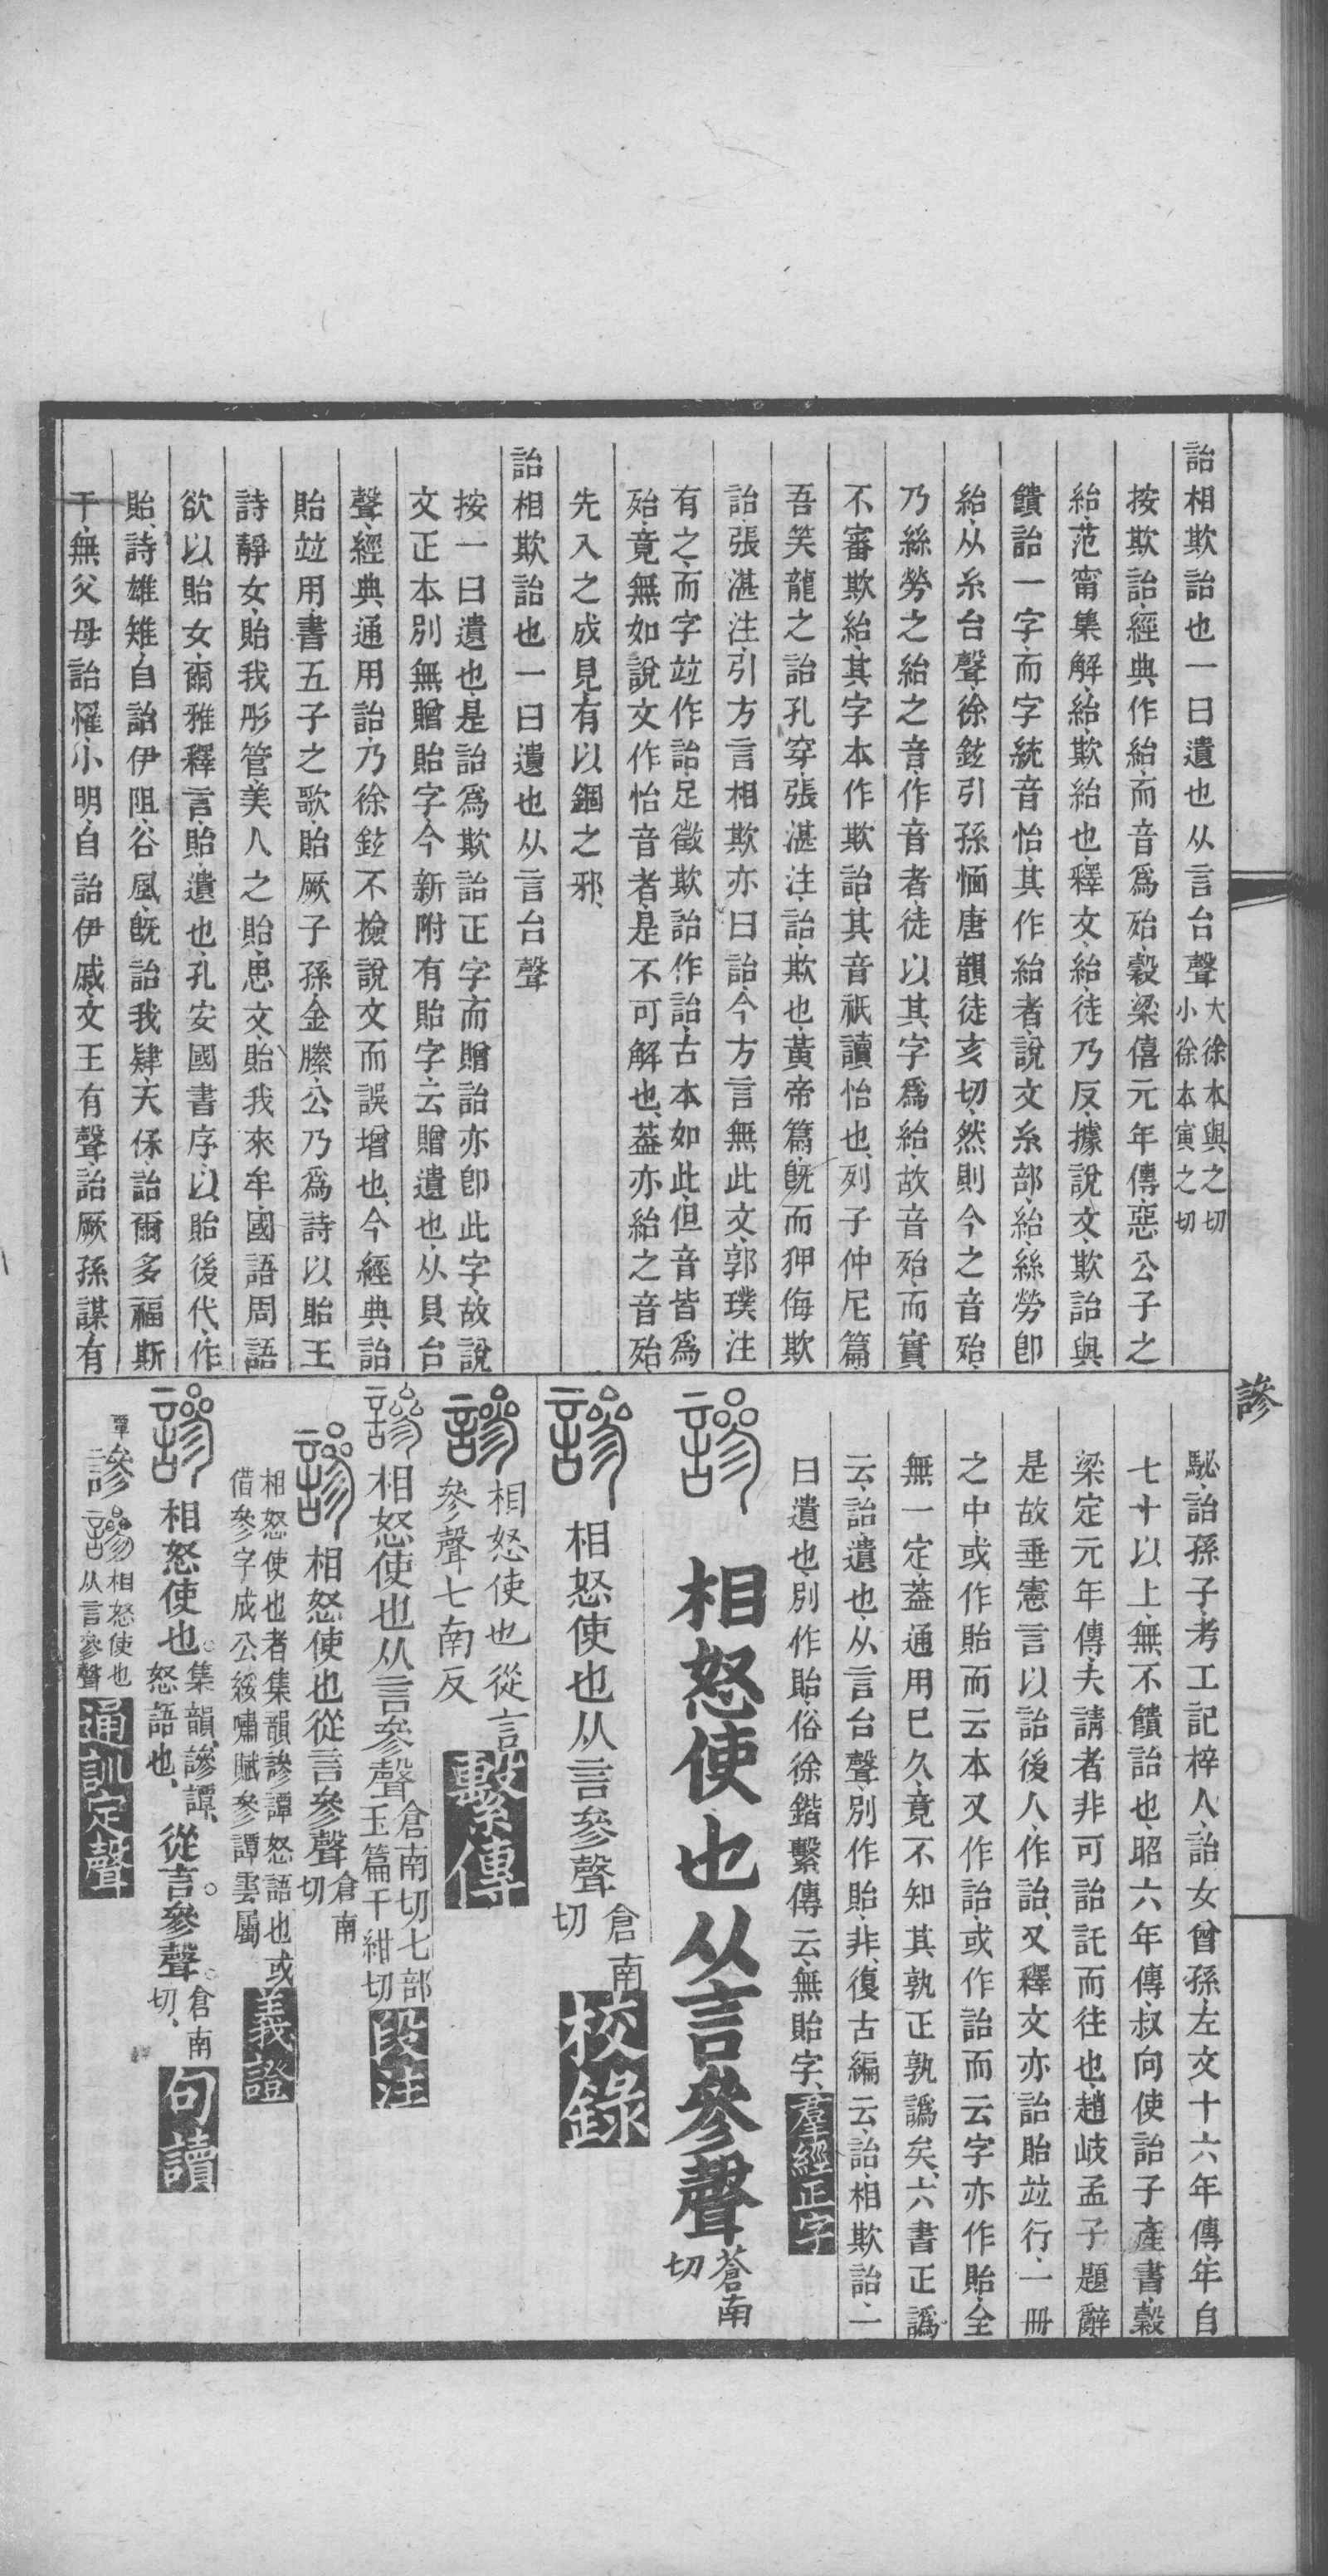 詒相欺詒也一曰遺也从言台聲大徐本與之切小徐本寅之切
按欺詒經典作紿而音爲殆穀梁僖元年傳惡公子之
紿范甯集解紿欺紿也釋文紿徒乃反據說文欺詒與
饋詒一字而字統音怡其作紿者說文糸部紿絲勞卽
紿从糸台聲徐鉉引孫愐唐韻徒亥切然則今之音殆
乃絲勞之紿之音作音者徒以其字爲紿故音殆而實
不審欺紿其字本作欺詒其音祇讀怡也列子仲尼篇
吾笑龍之詒孔穿張湛注詒欺也黃帝篇旣而狎侮欺
詒張湛注引方言相欺亦曰詒今方言無此文郭璞注
有之而字竝作詒足徵欺詒作詒古本如此但音皆爲
殆竟無如說文作怡音者是不可解也葢亦紿之音殆
先入之成見有以錮之邪
詒相欺詒也一曰遺也从言台聲
按一曰遺也是詒爲欺詒正字而贈詒亦卽此字故說
文正本別無贈貽字今新附有貽字云贈遺也从貝台
聲經典通用詒乃徐鉉不撿說文而誤增也今經典詒
貽竝用書五子之歌貽厥子孫金縢公乃爲詩以貽王
詩靜女貽我彤管美人之貽思文貽我來牟國語周語
欲以貽女爾雅釋言貽遺也孔安國書序以貽後代作
貽詩雄雉自詒伊阻谷風旣詒我肄天保詒爾多福斯
干無父母詒罹小明自詒伊戚文王有聲詒厥孫謀有
諺
駜詒孫子考工記梓人詒女曾孫左文十六年傳年自
七十以上無不饋詒也昭六年傳叔向使詒子產書穀
梁定元年傳夫請者非可詒託而往也趙岐孟子題辭
是故垂憲言以詒後人作詒又釋文亦詒貽竝行一冊
之中或作貽而云本又作詒或作詒而云字亦作貽全
無一定葢通用已久竟不知其孰正孰譌矣六書正譌
云詒遺也从言台聲別作貽非復古編云詒相欺詒一
曰遺也別作貽俗徐鍇繫傳云無貽字羣經正字
相怒使也从言參聲蒼南切
相怒使也从言參聲倉南切校錄
相怒使也從言參聲七南反繫傳
相怒使也从言參聲倉南切七部玉篇千紺切段注
相怒使也從言參聲倉南切
相怒使也者集韻謲譚怒語也或借參字成公綏嘯賦參譚雲屬義證
相怒使也。集韻謲譚、怒語也、從言參聲。倉南切、句讀
覃謲相怒使也从言參聲通訓定聲